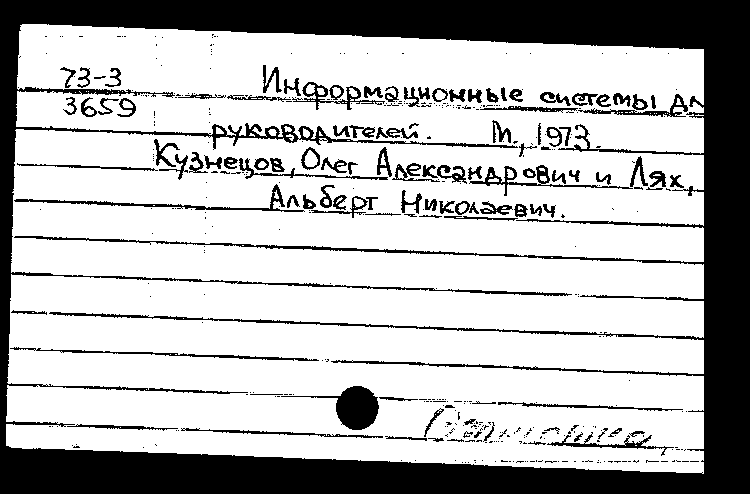 73-3
Информационные системы дл
3659
руководителей. М., 1973.
Кузнецов, Олег Александрович и Лях,
Альберт Николаевич.